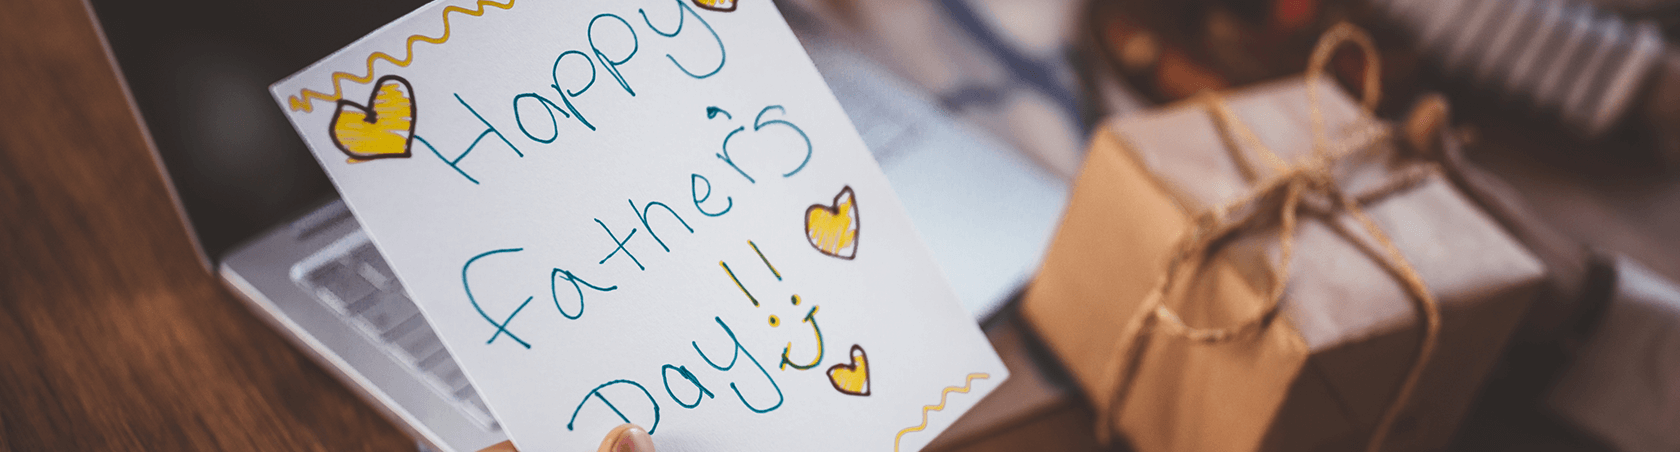 Happy
Father's
Day!!